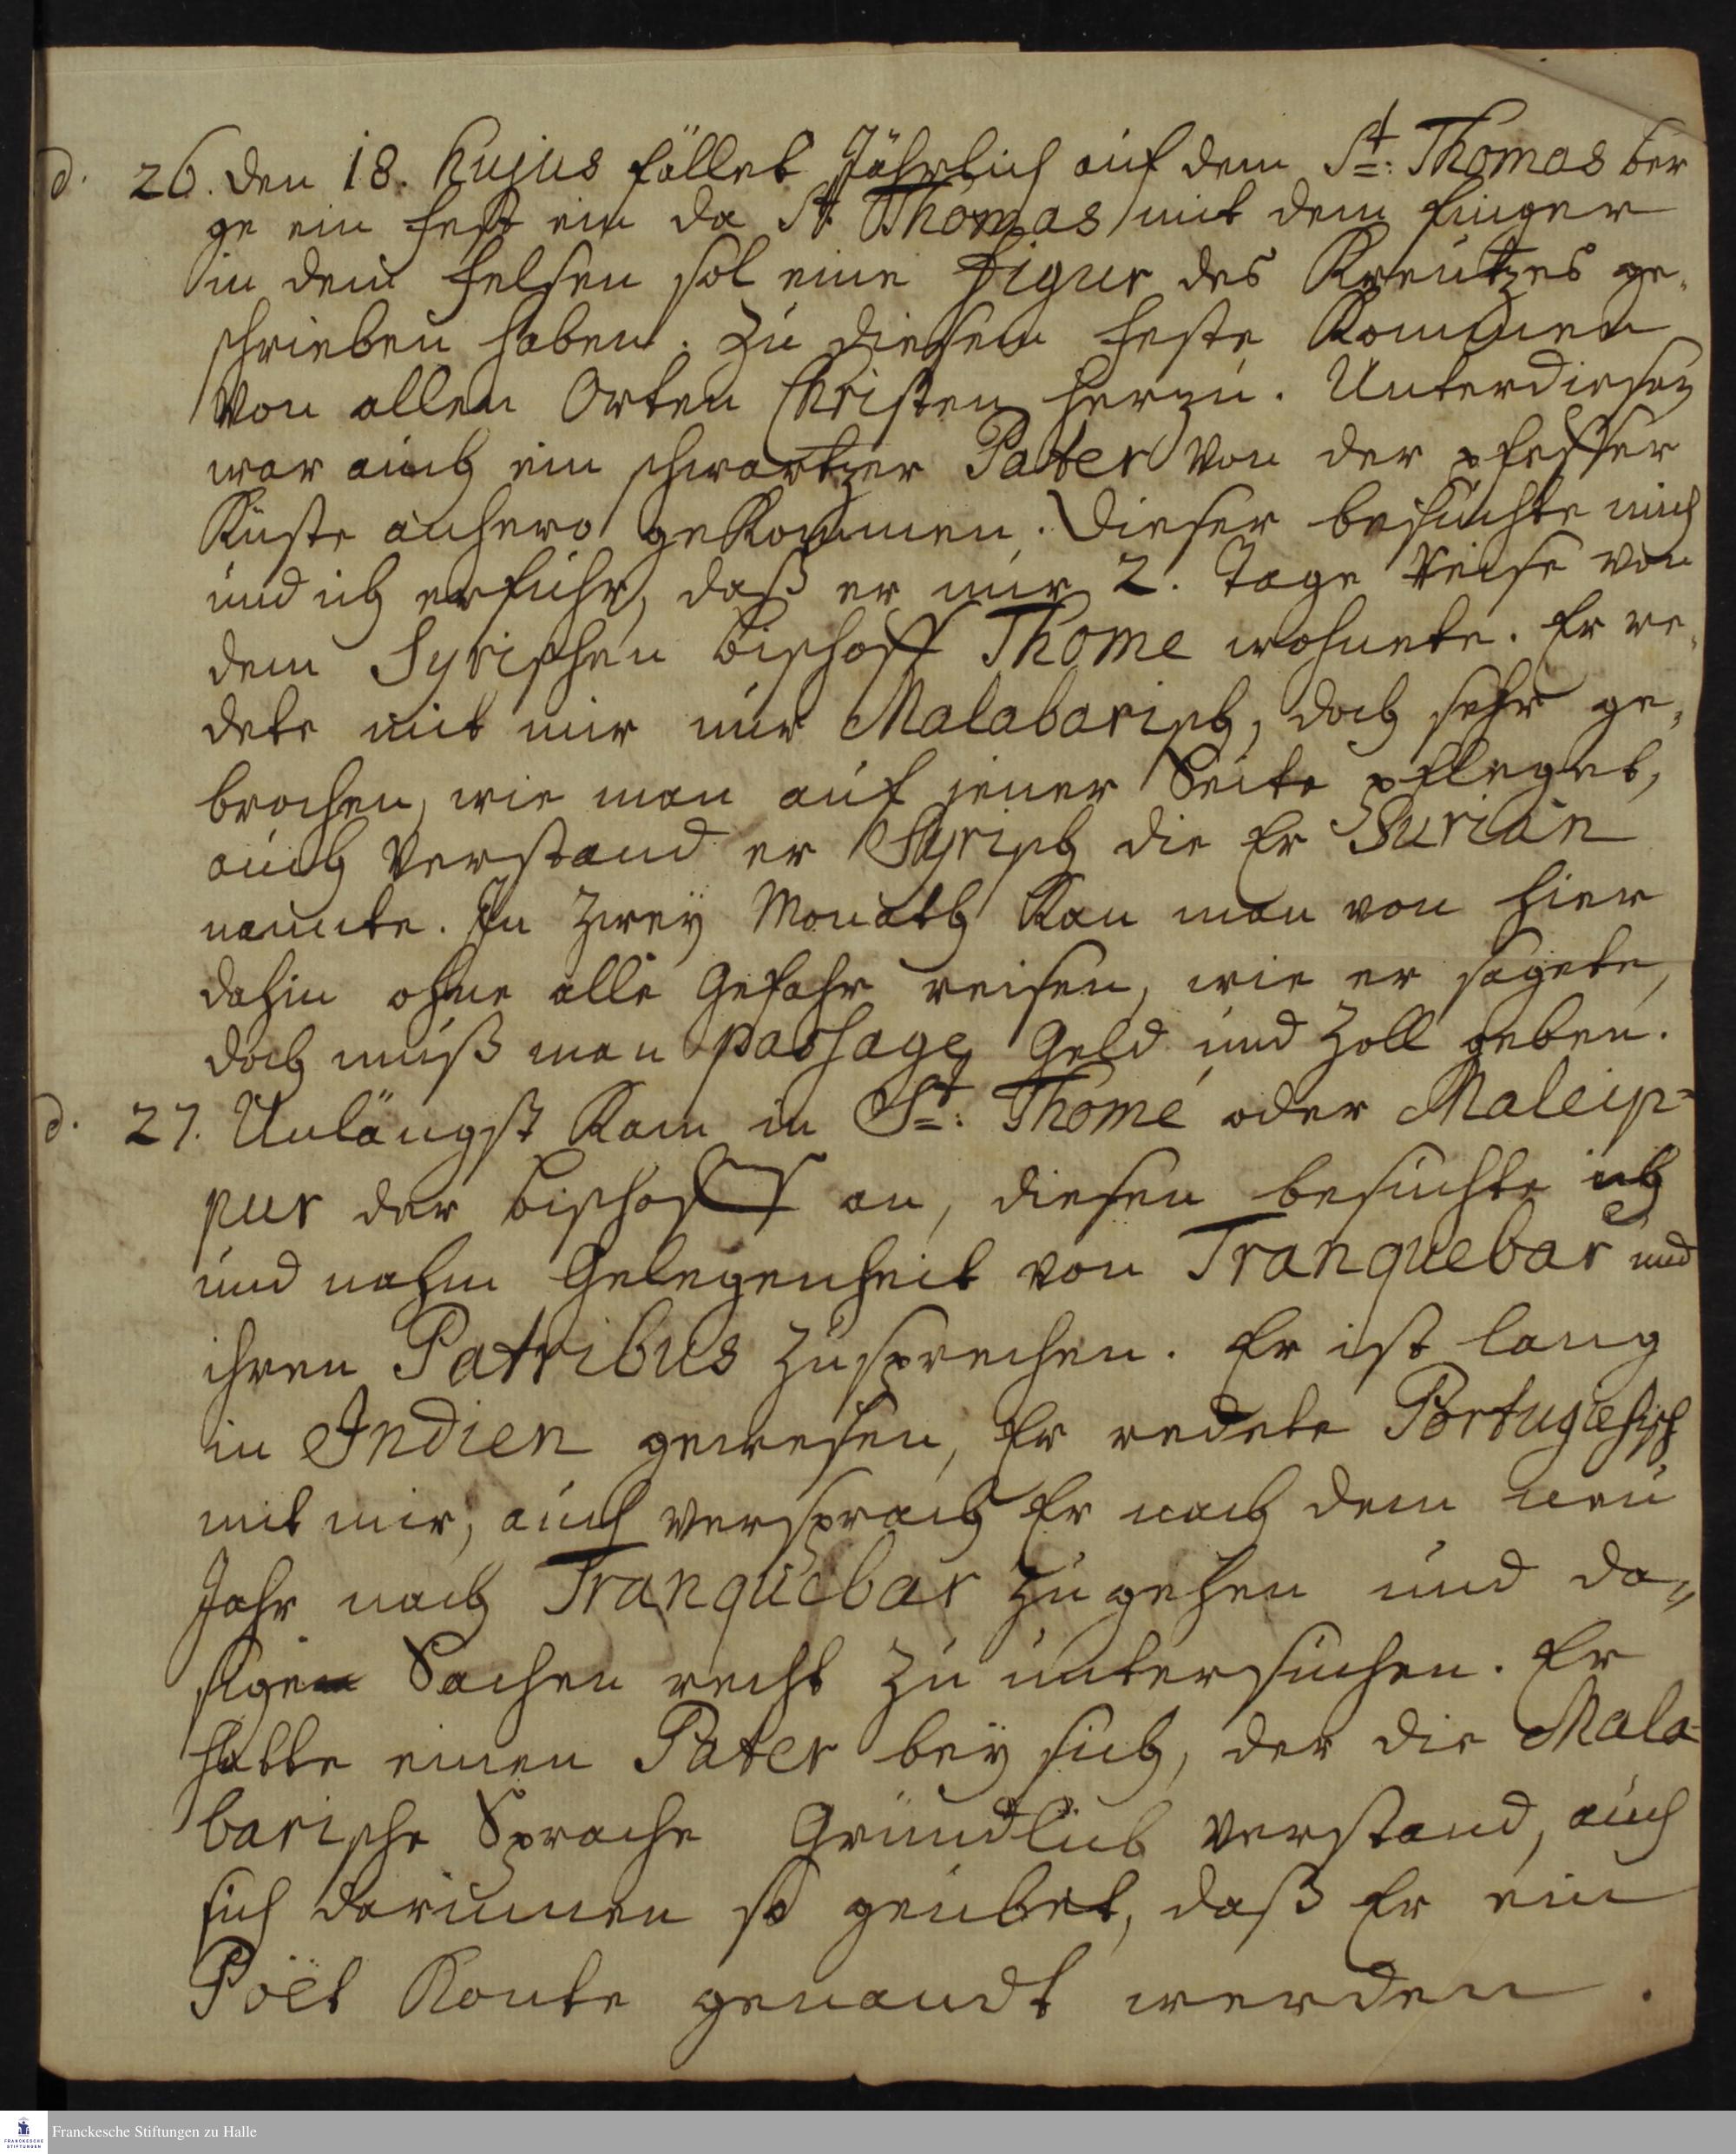 d. 26. den 18. hujus fället Jährlich auf dem St: Thomas ber
ge ein fest ein da St. Thomas mit dem finger
in dem felsen sol eine Figur des Kreutzes ge,
schrieben haben. Zu diesem feste kommen
von allen Orten Christen herzu. Unter diesen
war auch ein schwartzer Pater von der pfeffer
Küste anhero gekommen. Dieser besuchte mich
und ich erfuhr, daß er nur 2. Tage Reise von
dem Syrischen Bischoff Thome wohnete. Er re,
dete mit mir nur Malabarisch, doch sehr ge,
brochen, wie man auf jener Seite pfleget,
auch verstand er Syrisch die Er Surian
nannte. In zweÿ Monath kan man von hier
dahin ohne alle Gefahr reisen, wie er sagete,
doch muß man passage Geld und Zoll geben.
d. 27. Unlängst kam in St: Thomé oder Maleip=
pur der Bischoff an, diesen besuchte ich
und nahm Gelegenheit von Tranquebar und
ihren Patribus zusprechen. Er ist lang
in Indien gewesen, Er redete Portugiesisch
mit mir, auch versprach Er nach dem neu
Jahr nach Tranquebar zu gehen und da„
sigen Sachen recht zu untersuchen. Er
hatte einen Pater beÿ sich, der die Mala=
barische Sprache Gründlich verstand, auch
sich darinnen so geübet, daß Er ein
Poët konte genandt werden.
Franckesche Stiftungen zu Halle
FRANCKESCHE
STIFTUNGEN